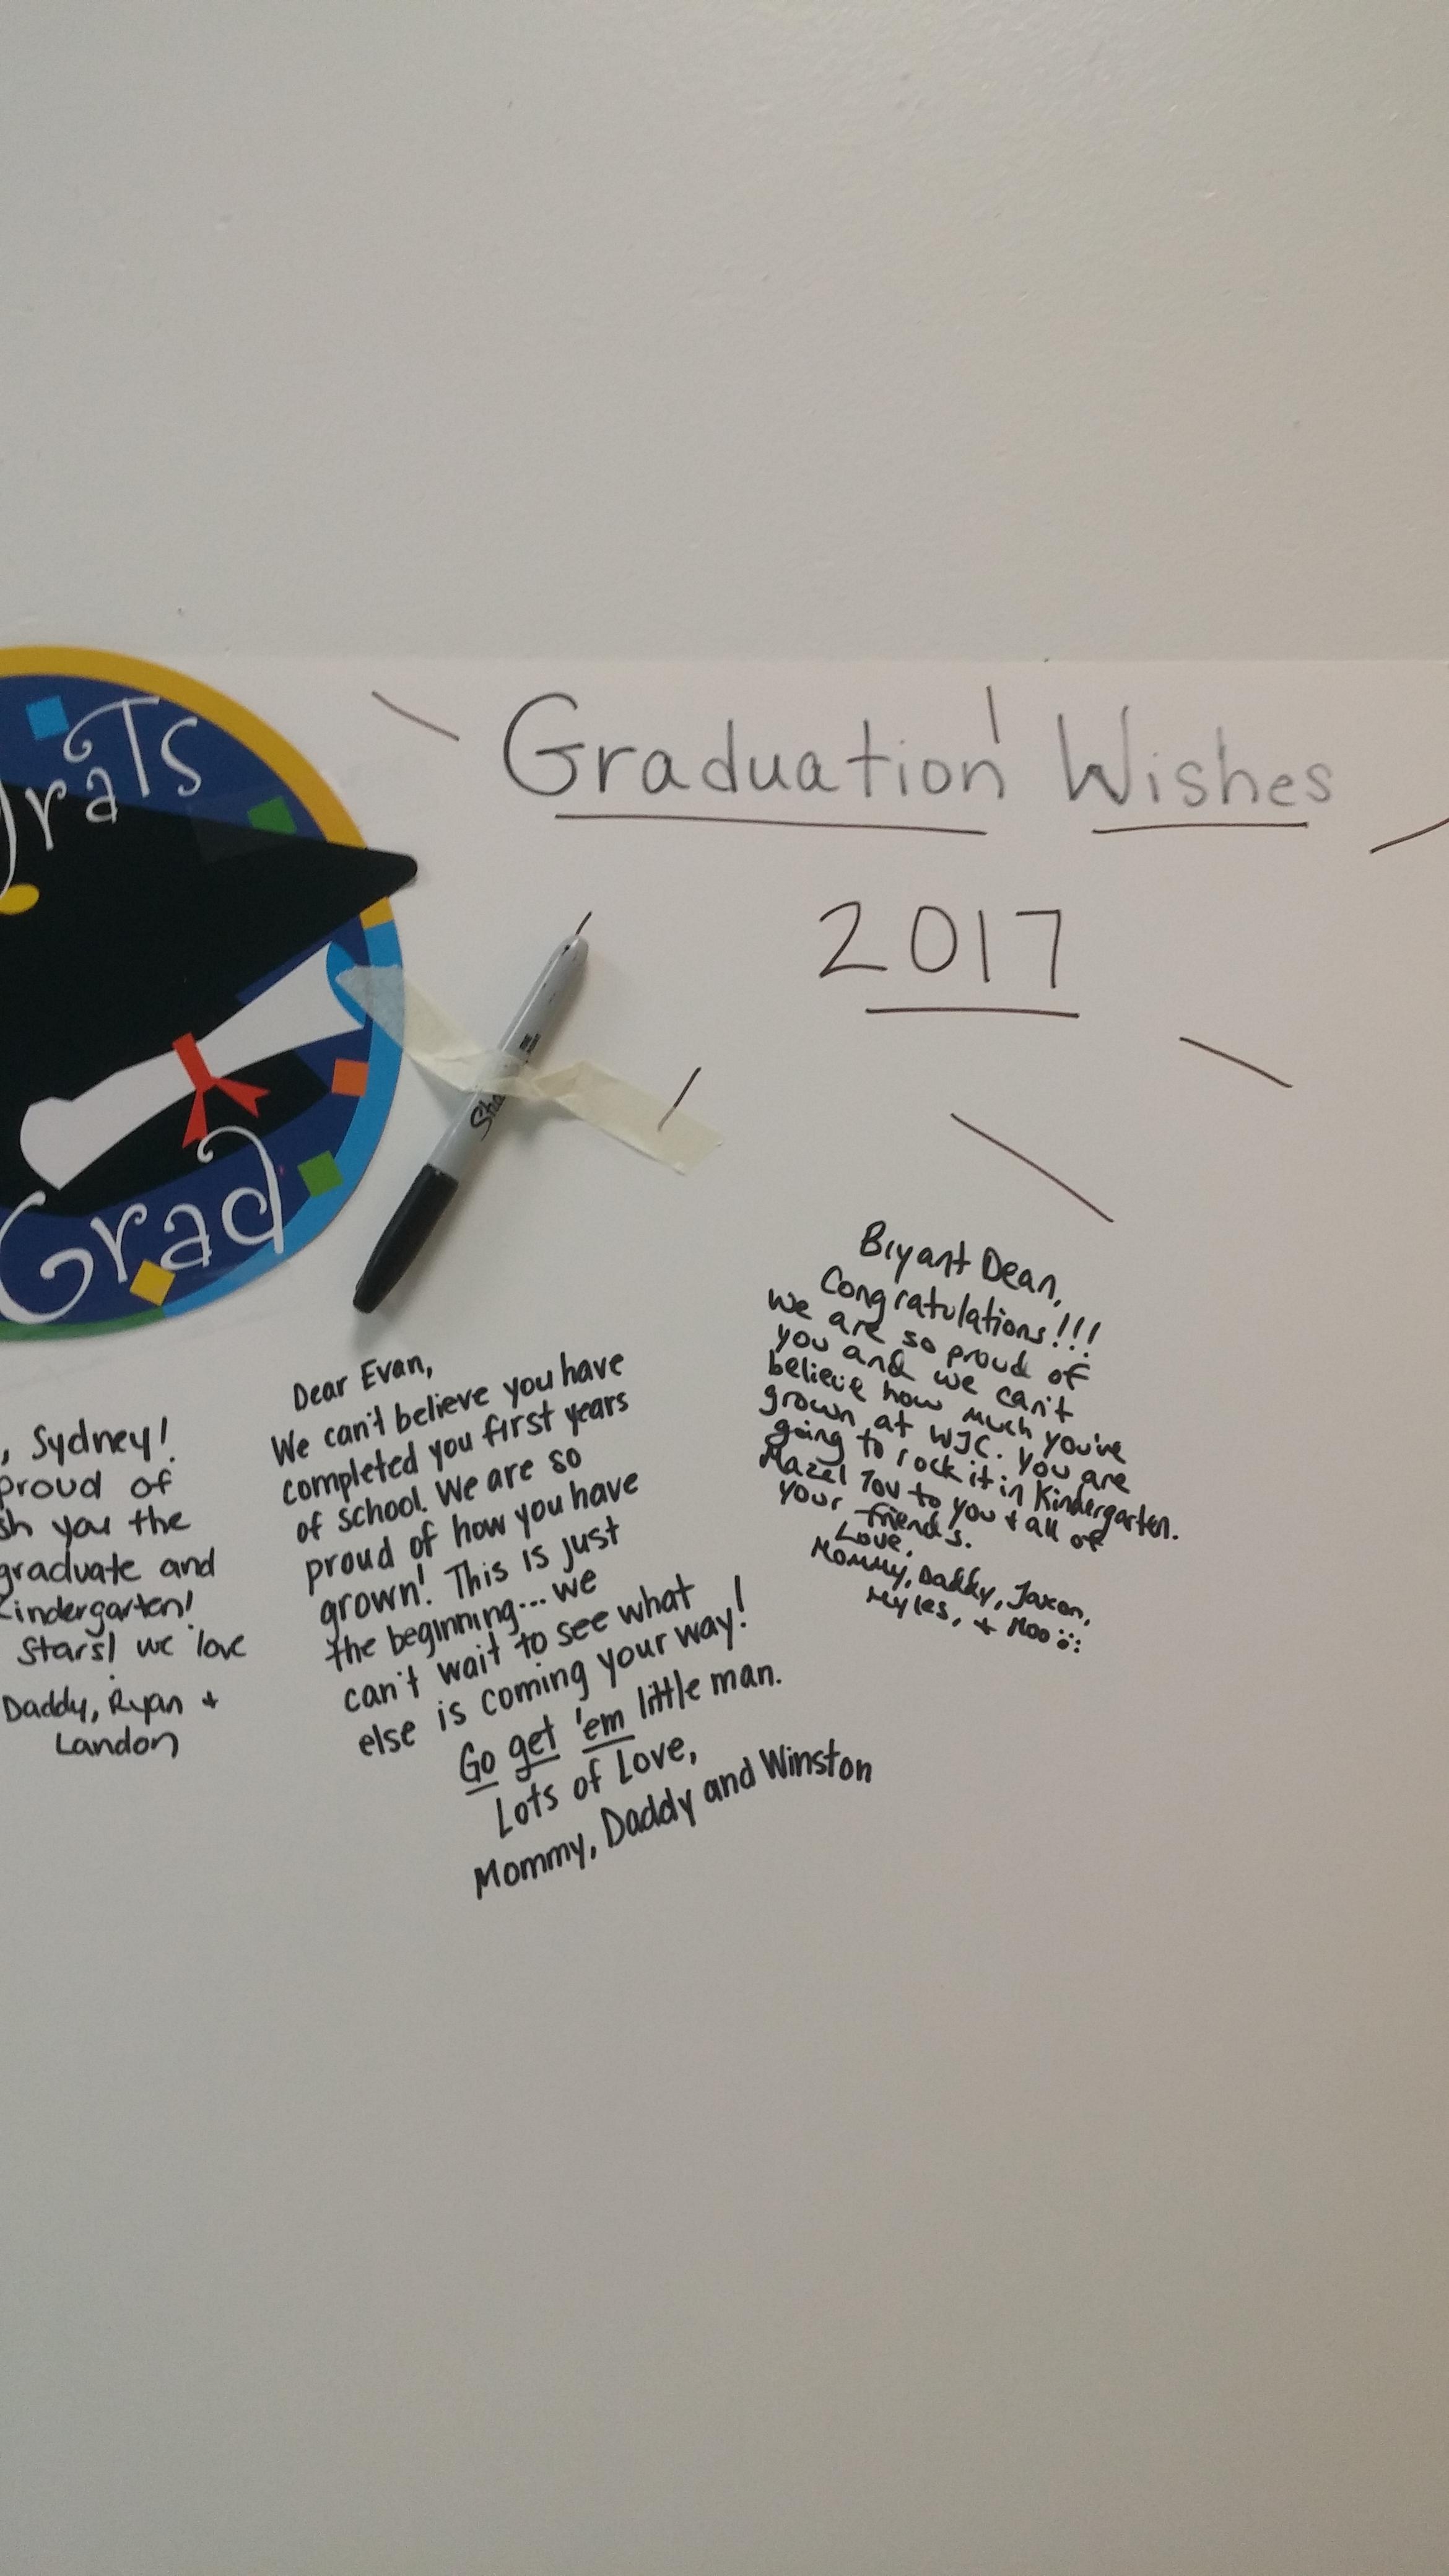 Graduation Wishes
2017
rats
Grad
Sha
, Sydney!
proud of
sh you the
graduate and
Kindergarten!
Stars! we love
Daddy, Ryan +
Landon
Dear Evan,
We can't believe you have
completed you first years
of school. We are so
proud of how you have
grown! This is just
the beginning... we
can't wait to see what
else is coming your way!
Go get 'em little man.
Lots of Love,
Mommy, Daddy and Winston
Bryant Dean,
Congratulations!!!
We are so proud of
you and we can't
believe how much you've
grown at WJC. You are
going to rock it in Kindergarten.
Mazel Tov to you + all of
your friends.
Love,
Mommy, Daddy, Jaxon,
Myles, + Moo